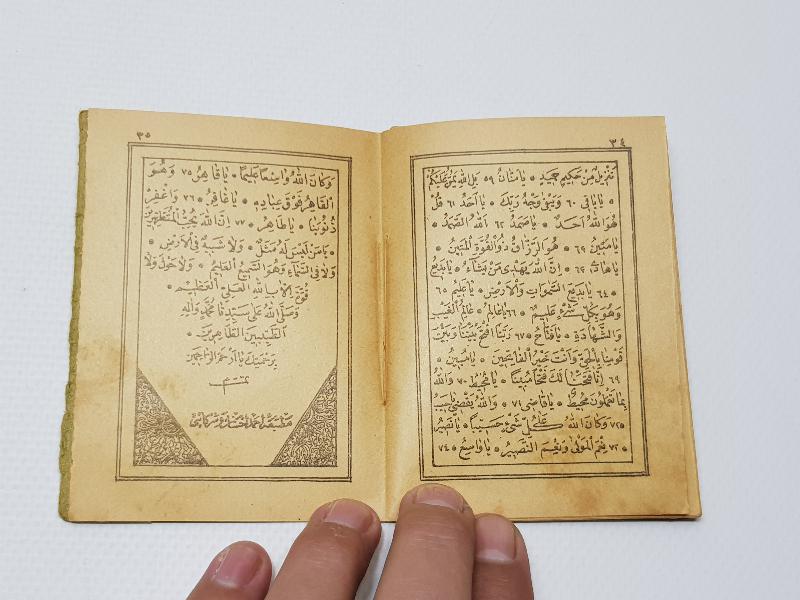 ٣٤
تَنْزِيلٌ مِنْ حَكِيمٍ حَمِيدٍ * يَا مَنَّانُ ٥٩ بَلِ اللهُ يَمُنُّ عَلَيْكُمْ
* يَا بَاقِى ٦٠ وَيَبْقَى وَجْهُ رَبِّكَ * يَا اَحَدُ ٦١ قُلْ
هُوَ اللهُ اَحَدٌ * يَا صَمَدُ ٦٢ اَللهُ الصَّمَدُ *
يَا مَتِينُ ٦٣ * هُوَ الرَّزَّاقُ ذُو الْقُوَّةِ الْمَتِينُ *
اِنَّ اللهَ يَهْدِى مَنْ يَشَاءُ * يَا بَدِيعُ
٦٤ * يَا بَدِيعَ السَّمٰوَاتِ وَالْاَرْضِ * يَا عَلِيمُ ٦٥
وَهُوَ بِكُلِّ شَىْءٍ عَلِيمٌ * ٦٦ يَا عَالِمُ * عَالِمُ الْغَيْبِ
وَالشَّهَادَةِ * يَا فَتَّاحُ * ٦٧ رَبَّنَا افْتَحْ بَيْنَنَا وَبَيْنَ
قَوْمِنَا بِالْحَقِّ وَاَنْتَ خَيْرُ الْفَاتِحِينَ * يَا مُبِينُ *
٦٩ اِنَّا فَتَحْنَا لَكَ فَتْحًا مُبِينًا * يَا مُحِيطُ ٧٠ وَاللهُ
بِمَا تَعْمَلُونَ مُحِيطٌ * يَا قَاضِى ٧١ * وَاللهُ يَقْضِى
وَكَانَ اللهُ عَلٰى كُلِّ شَىْءٍ حَسِيبًا * يَا نَصِيرُ
* ٧٣ نِعْمَ الْمَوْلٰى وَنِعْمَ النَّصِيرُ * يَا وَاسِعُ * ٧٤
٣٥
وَكَانَ اللهُ وَاسِعًا عَلِيمًا * يَا قَاهِرُ ٧٥ وَهُوَ
الْقَاهِرُ فَوْقَ عِبَادِهِ * يَا غَافِرُ * ٧٦ وَاغْفِرْ
ذُنُوبَنَا * يَا طَاهِرُ * ٧٧ اِنَّ اللهَ يُحِبُّ الْمُتَطَهِّرِينَ
* يَا مَنْ لَيْسَ لَهُ مَثَلٌ * وَلَا شَبِيهٌ فِى الْاَرْضِ *
وَلَا فِى السَّمَاءِ وَهُوَ السَّمِيعُ الْعَلِيمُ * وَلَا حَوْلَ وَلَا
قُوَّةَ اِلَّا بِاللهِ الْعَلِىِّ الْعَظِيمِ *
وَصَلَّى اللهُ عَلٰى سَيِّدِنَا مُحَمَّدٍ وَآلِهِ
الطَّيِّبِينَ الطَّاهِرِينَ
بِرَحْمَتِكَ يَا اَرْحَمَ الرَّاحِمِينَ
مطبعه احمد احسان وشركاسى